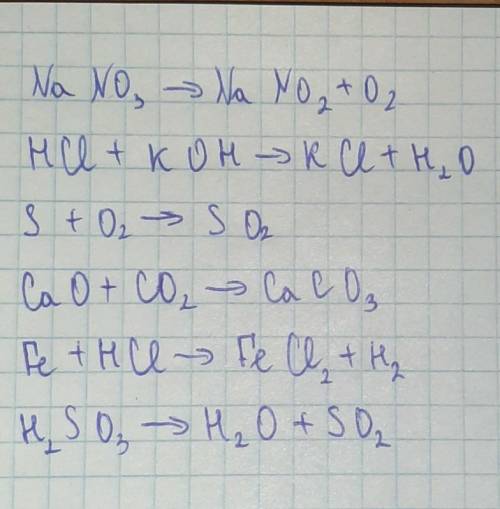 NaNO₃ → NaNO₂ + O₂
HCl + KOH → KCl + H₂O
S + O₂ → SO₂
CaO + CO₂ → CaCO₃
Fe + HCl → FeCl₂ + H₂
H₂SO₃ → H₂O + SO₂